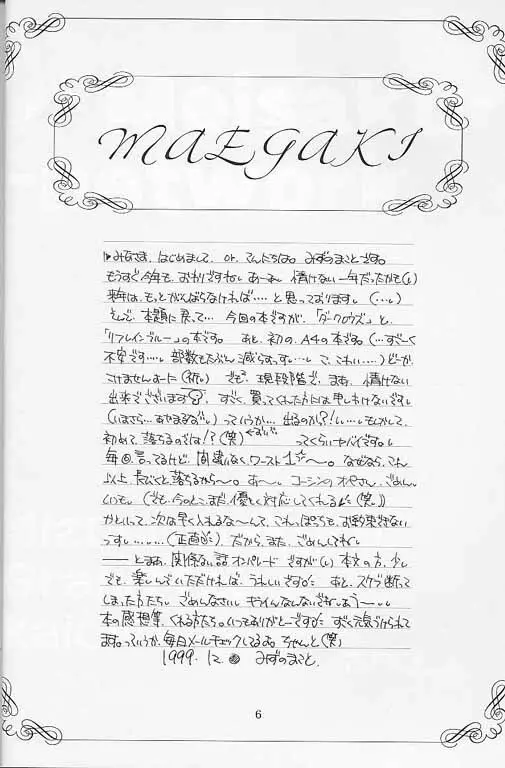 MAEGAKI
みなさま、はじめまして、or、こんにちは。みずのまことです。
もうすぐ今年も、おわりですねぃ。あーあー、情けない一年だったかも(し)
来年は、もっとがんばらなければ・・・・と思っております。(…し)
そんで、本題に戻って…今回の本ですが、「ダークロウズ」と、
「リフレインブルー」の本です。あと、初の、A4の本です。(…すごーく
不安です…。部数もたぶん減らすっす…。こ、こわい…)どーか、
こけませんよーに(祈)。でも、現段階で、まあ、情けない
出来でございます?。すごく、買ってくれた方には申しわけないです。
(いまさら…あやまるな。)っていうか…出るのか?!…もしかして、
初めて、落ちるのでは!?(笑) ってくらいヤバイです。
毎回、言ってるけど、間違いなくワースト1☆〜。なぜなら、これ
以上、長びくと落ちるから〜。あー、コーシンのオヤさん、ごめん
いつも。(でも、今のとこ、まだ、優しく対応してくれる(笑))
かといって、次は早く入れるな〜んて、これっぽっちも、お約束できない
っす……。(正直) だから、また、ごめんしてね。
―― とまあ、関係ない話オンパレードですが(し)本文の方、少し
でも、楽しんでいただければ、うれしいです。あと、スケブ断って
しまった方たち。ごめんなさい。
本の感想等、くれる方たち。いつもありがとーです。すごく元気づけられて
ます。っていうか、毎日メールチェックしてるよ。ちゃんと(笑)
1999.12. みずのまこと.
6